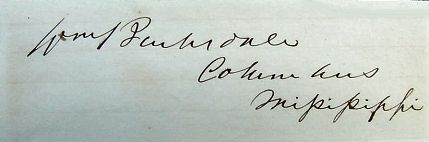 Wm Barksdale
Columbus
Mississippi